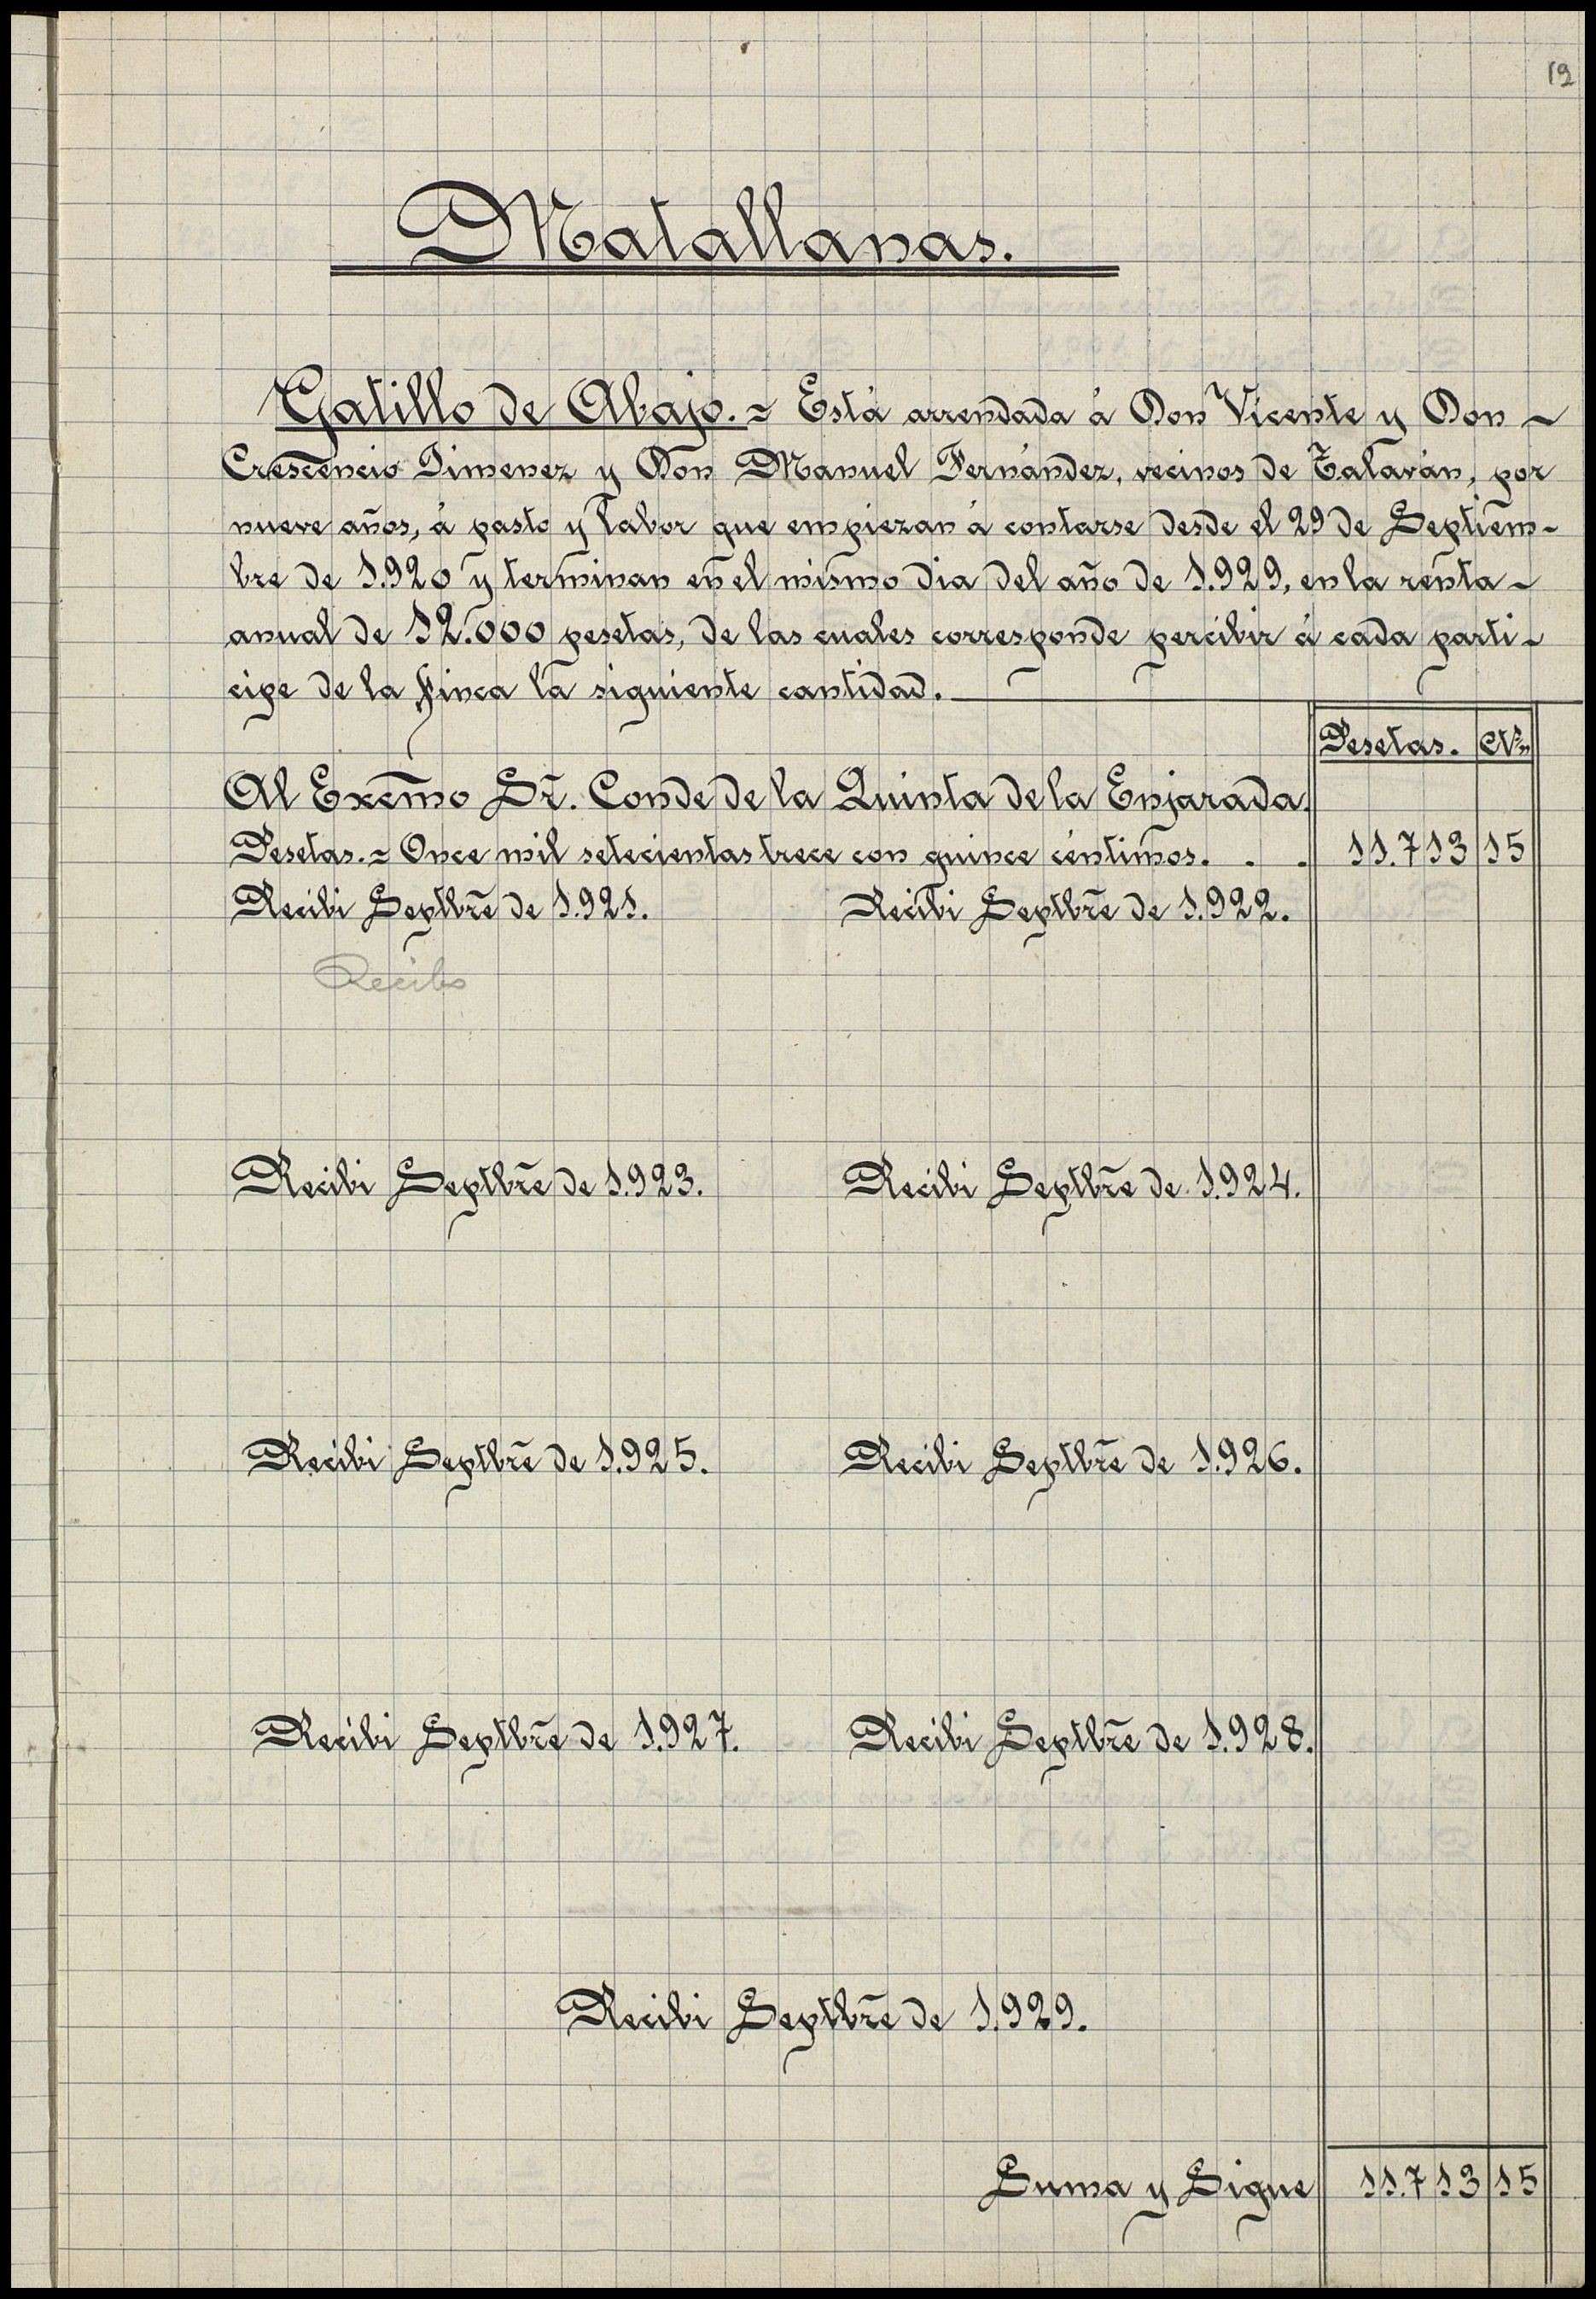 19
Matallanas.
Gatillo de Abajo.= Está arrendada á Don Vicente y Don ~
Crescencio Jimenez y Don Manuel Fernández, vecinos de Talaván, por
nueve años, á pasto y labor que empiezan á contarse desde el 29 de Septiem-
bre de 1.920 y terminan en el mismo dia del año de 1.929, en la renta ~
anual de 12.000 pesetas, de las cuales corresponde percibir á cada parti-
cipe de la finca la siguiente cantidad.
Pesetas. Cts
Al Excm̃o Sr̃. Conde de la Quinta de la Enjarada.
Pesetas.= Once mil setecientas trece con quince céntimos. . . 11.713 15
Recibi Septbr̃e de 1.921. Recibi Septbr̃e de 1.922.
Recibo
Recibi Septbr̃e de 1.923. Recibi Septbr̃e de 1.924.
Recibi Septbr̃e de 1.925. Recibi Septbr̃e de 1.926.
Recibi Septbr̃e de 1.927. Recibi Septbr̃e de 1.928.
Recibi Septbr̃e de 1.929.
Suma y Sigue 11.713 15